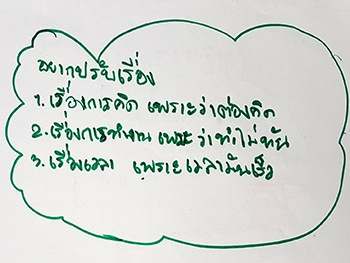 อยากปรับเรื่อง
1. เรื่องการคิด เพราะว่าต้องคิด
2. เรื่องการทำงาน เพราะว่าทำไม่ทัน
3. เรื่องเวลา เพราะเวลามันเร็ว